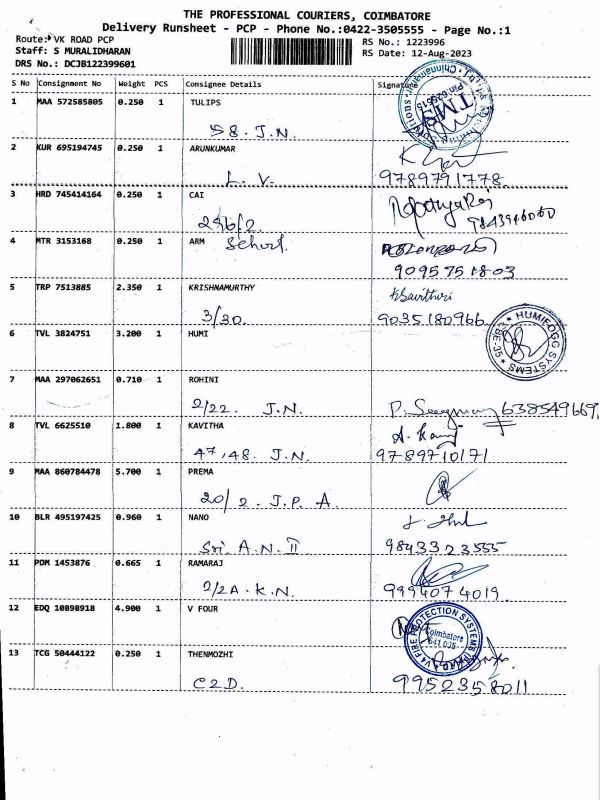 THE PROFESSIONAL COURIERS, COIMBATORE
Delivery Runsheet - PCP - Phone No.:0422-3505555 - Page No.:1
Route: VK ROAD PCP RS No.: 1223996
Staff: S MURALIDHARAN RS Date: 12-Aug-2023
DRS No.: DCJB122399601
S No Consignment No Weight PCS Consignee Details Signature
1 MAA 572585805 0.250 1 TULIPS
58. J.N. TMS
2 KUR 695194745 0.250 1 ARUNKUMAR
L. V. 9789791778
3 HRD 745414164 0.250 1 CAI
246/2
4 MTR 3153168 0.250 1 ARM
School. 9095751803
5 TRP 7513885 2.350 1 KRISHNAMURTHY
3/30. 9035180966
6 TVL 3824751 3.200 1 HUMI HUMIFOGG SYSTEMS
7 MAA 297062651 0.710 1 ROHINI
2/22. J.N. 638549669
8 TVL 6625510 1.800 1 KAVITHA
47,48. J.N. 9789710171
9 MAA 860784478 5.700 1 PREMA
20/2. J.P. A.
10 BLR 495197425 0.960 1 NANO
Sri A.N. II 9843323555
11 PDM 1453876 0.665 1 RAMARAJ
2/2A. K.N. 9994074019
12 EDQ 10898918 4.900 1 V FOUR V4 FIRE PROTECTION SYSTEMS
Coimbatore
641 035
13 TCG 50444122 0.250 1 THENMOZHI
C2D. 9952358011